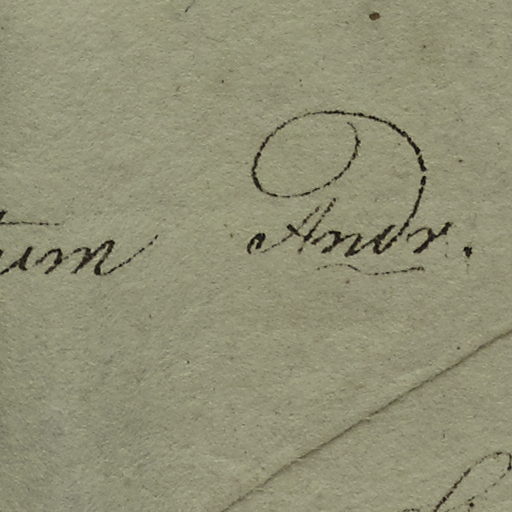 tum Andr.